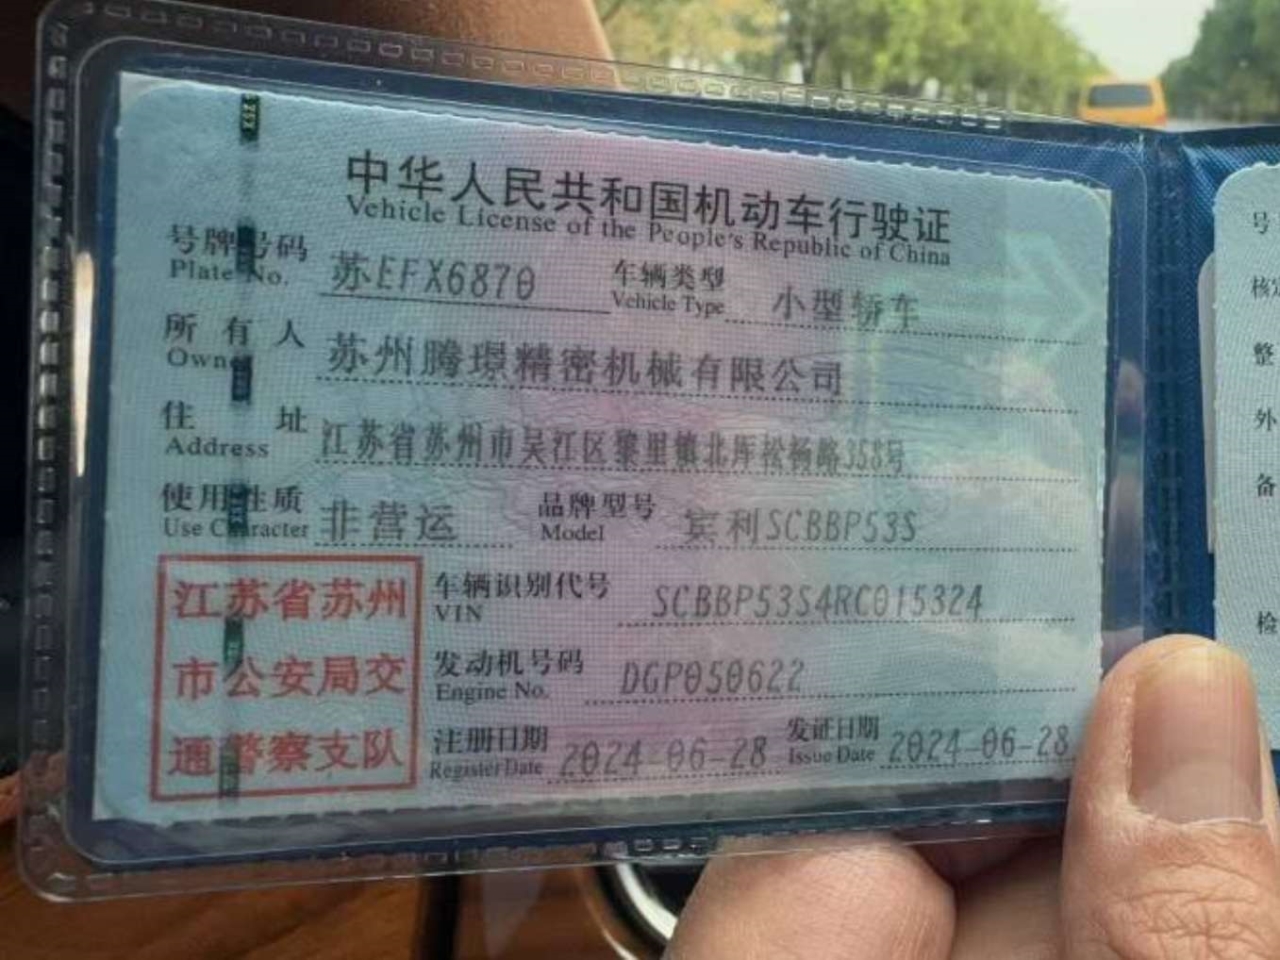 中华人民共和国机动车行驶证
Vehicle License of the People's Republic of China
号牌号码 苏EFX6870 车辆类型 小型轿车
Plate No. Vehicle Type
所有人 苏州腾璟精密机械有限公司
Owner
住址 江苏省苏州市吴江区黎里镇北厍松杨路358号
Address
使用性质 非营运 品牌型号 宾利SCBBP53S
Use Character Model
江苏省苏州
市公安局交
通警察支队
车辆识别代号 SCBBP53S4RC015324
VIN
发动机号码 DGP050622
Engine No.
注册日期 2024-06-28 发证日期 2024-06-28
Register Date Issue Date
号
核定
整
外
备
检